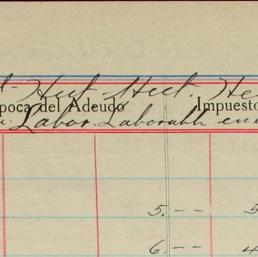 Hect. Hect. He
poca del Adeudo Impuesto
Labor. Laborabl en
5.--  5
6.--  4